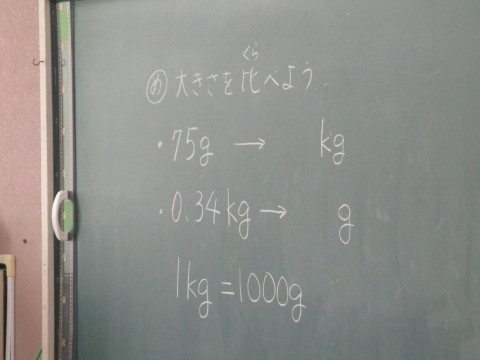 くら
め 大きさを比べよう.
・75g → kg
・0.34kg → g
1kg=1000g